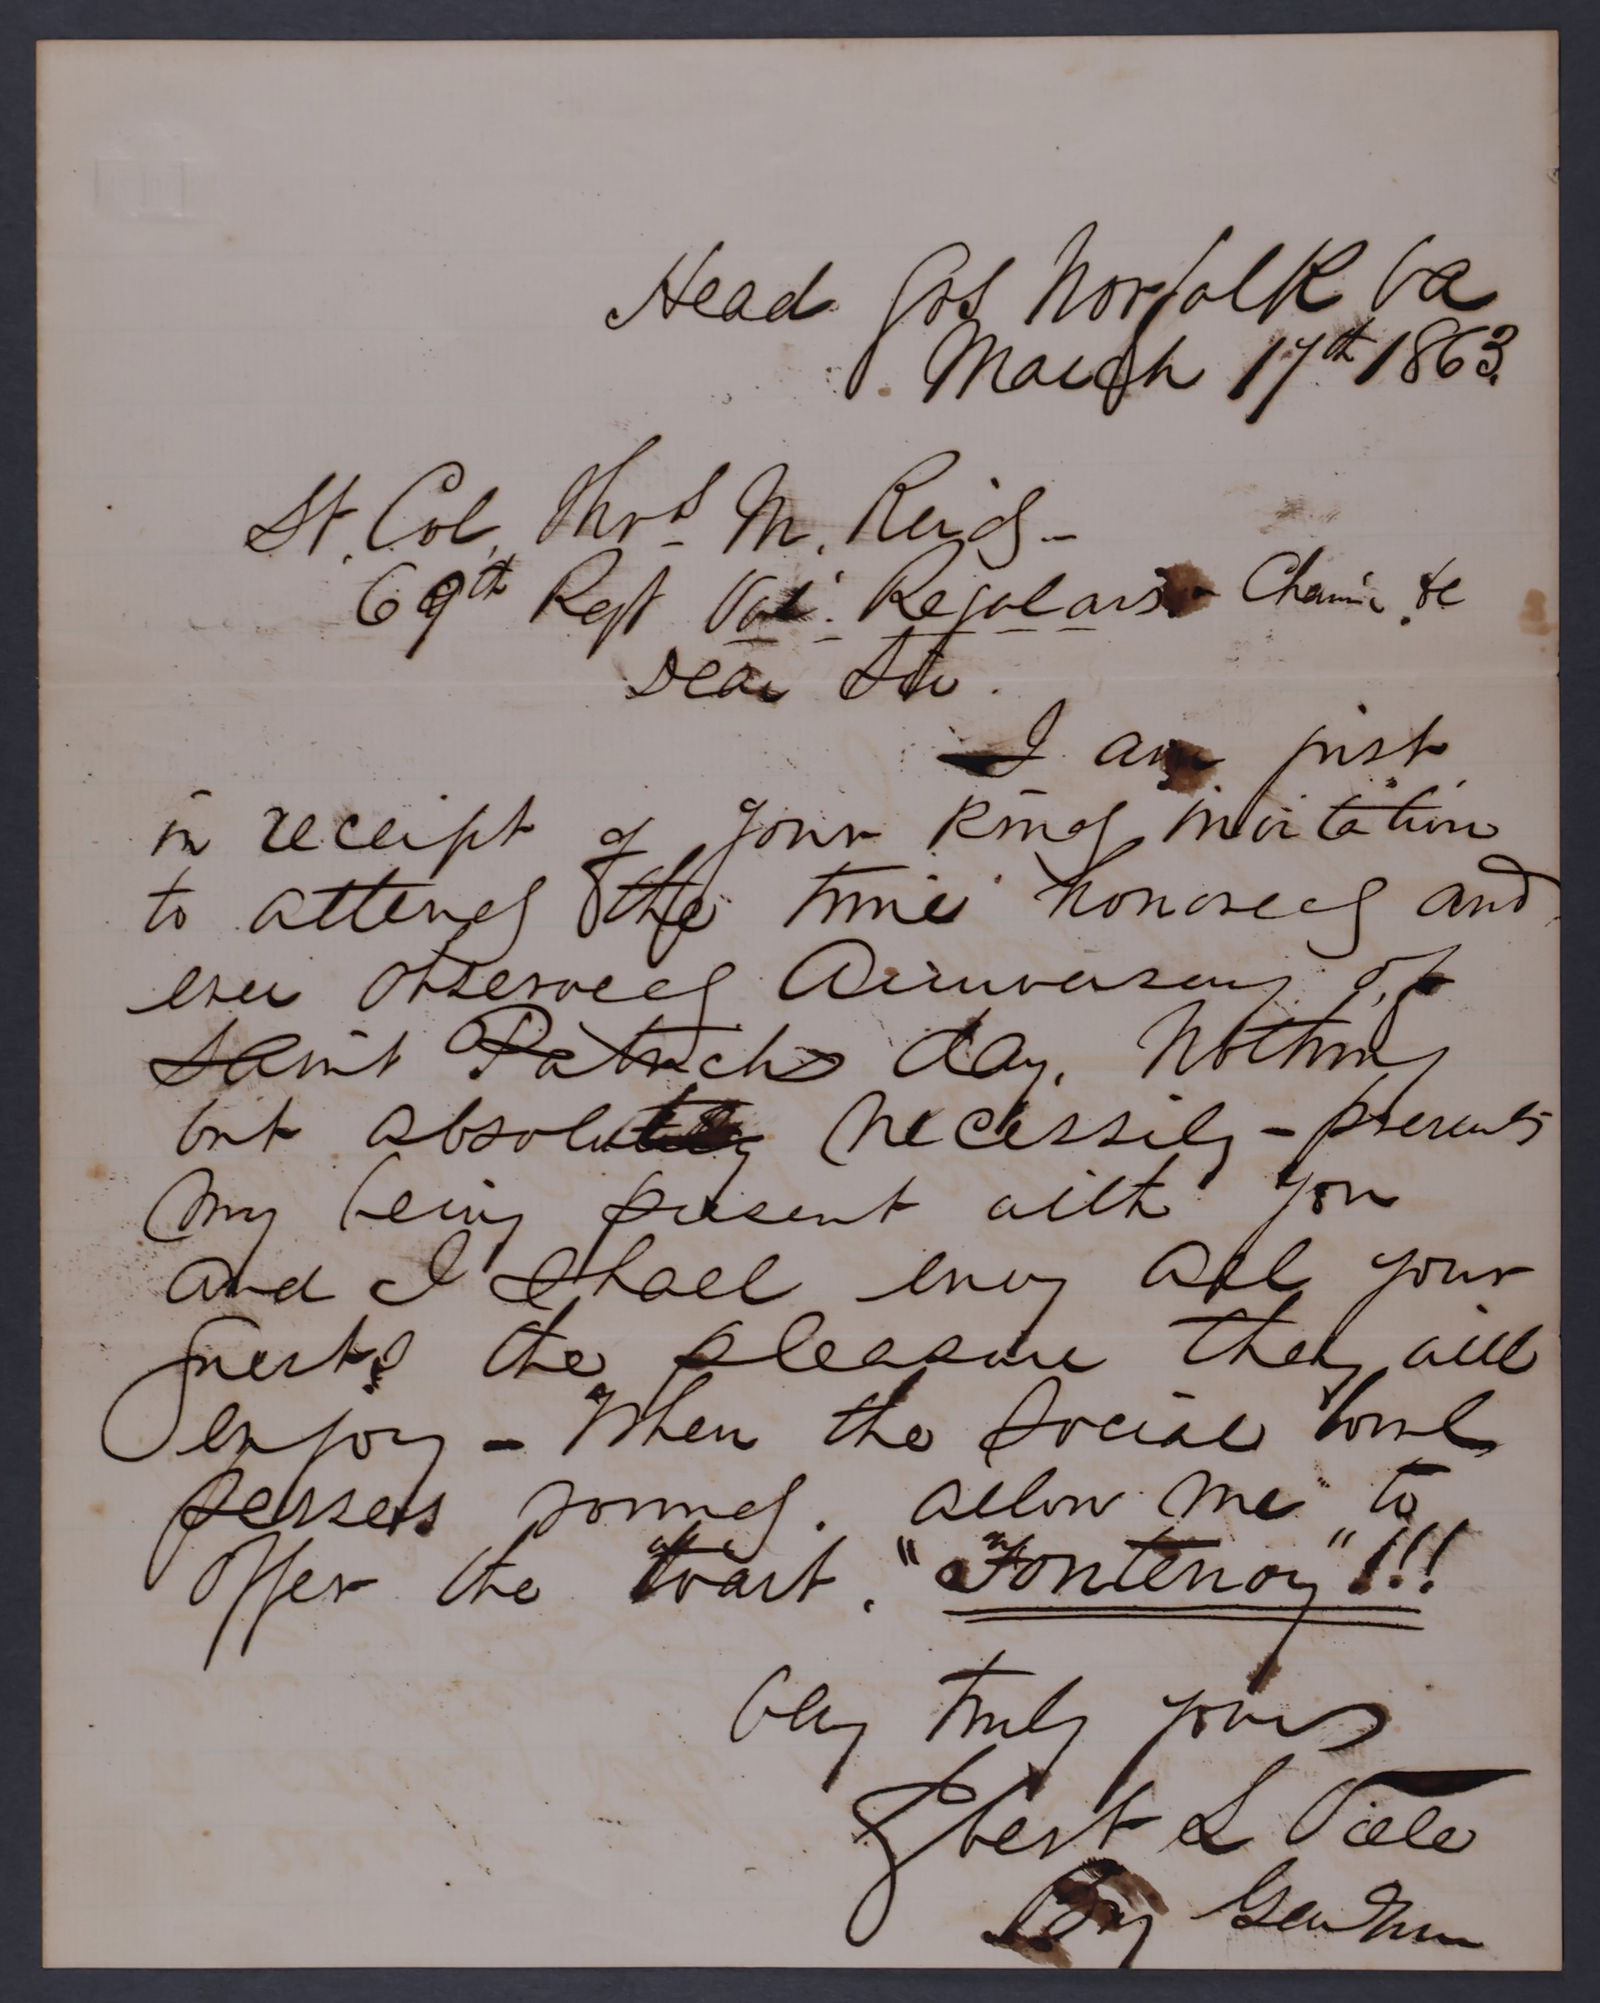 Head Qrs Norfolk Va
March 17th 1863.
Lt. Col. Thos M. Reid -
69th Regt Vol. Regulars - Chairn &c
Dear Sir.
I am just
in receipt of your kind invitation
to attend the time honored and
ever observed Anniversary of
Saint Patricks day. Nothing
but absolute necessity - prevents
my being present with you
and I shall envy all your
guests the pleasure they will
enjoy - When the social bowl
passes round. allow me to
offer the toast. "Fontenoy"!!!
Very truly yours
Egbert L Viele
Brig Gen